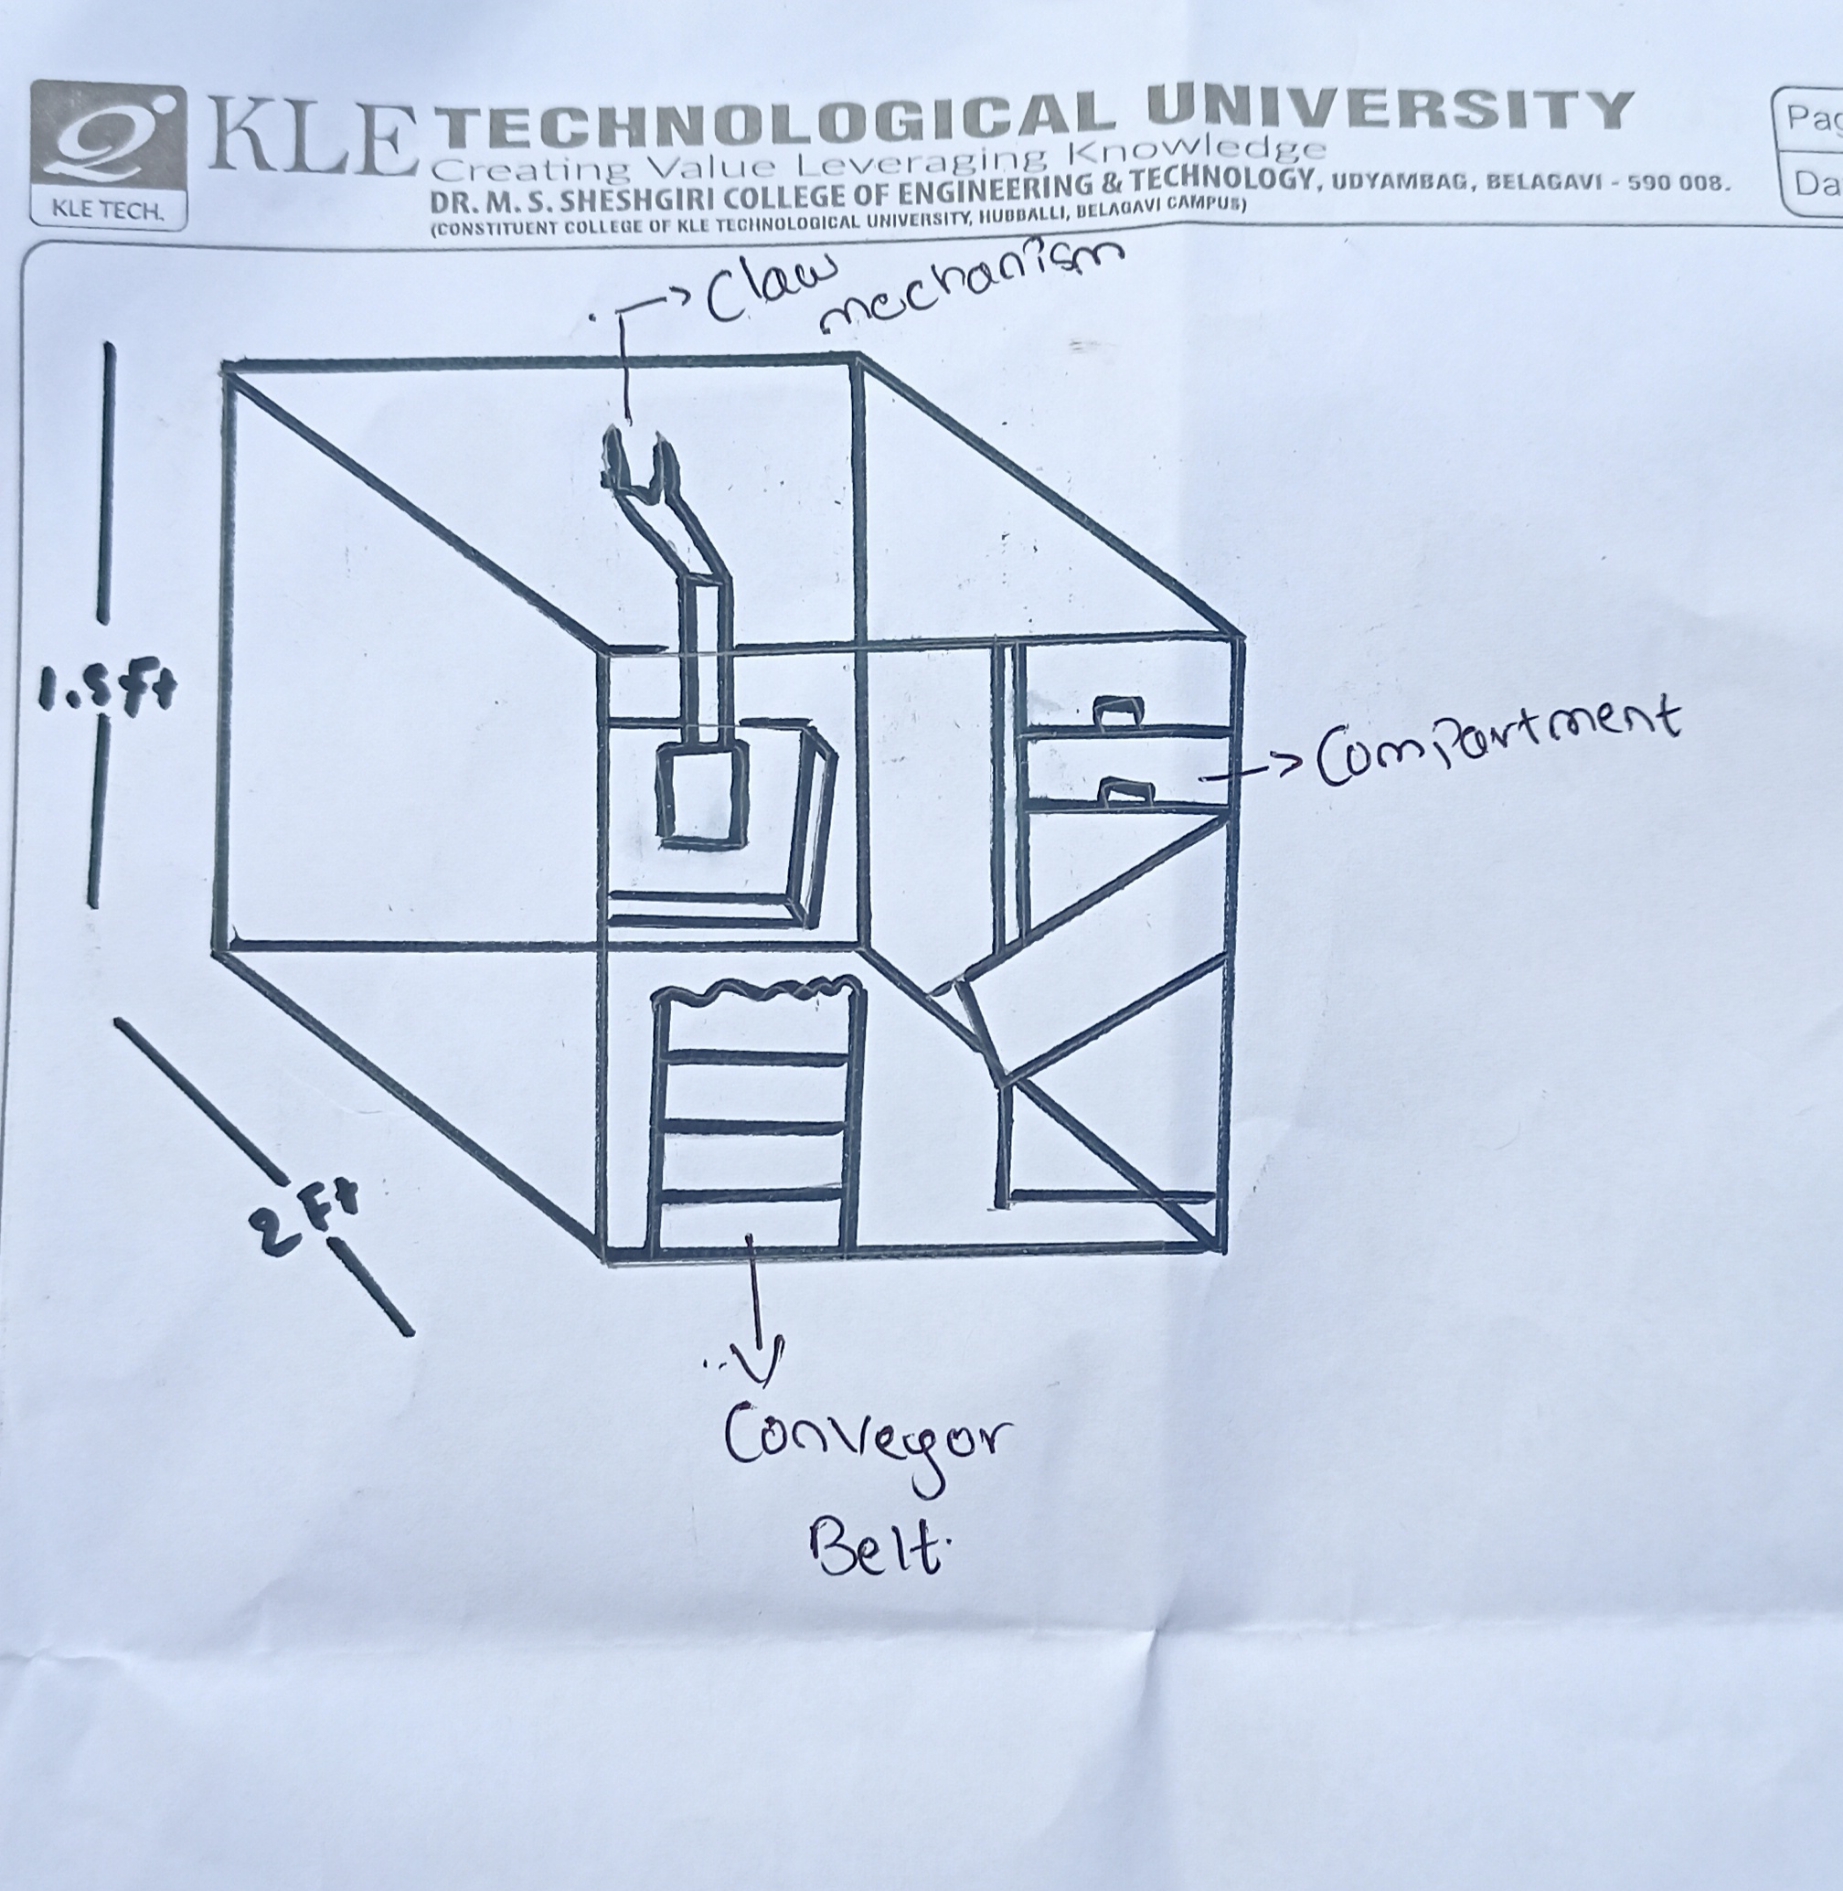 KLE TECHNOLOGICAL UNIVERSITY
Creating Value Leveraging Knowledge
DR. M. S. SHESHGIRI COLLEGE OF ENGINEERING & TECHNOLOGY, UDYAMBAG, BELAGAVI - 590 008.
(CONSTITUENT COLLEGE OF KLE TECHNOLOGICAL UNIVERSITY, HUBBALLI, BELAGAVI CAMPUS)
KLE TECH.
Claw
mechanism
1.5 Ft
Compartment
2 Ft
Conveyor
Belt.